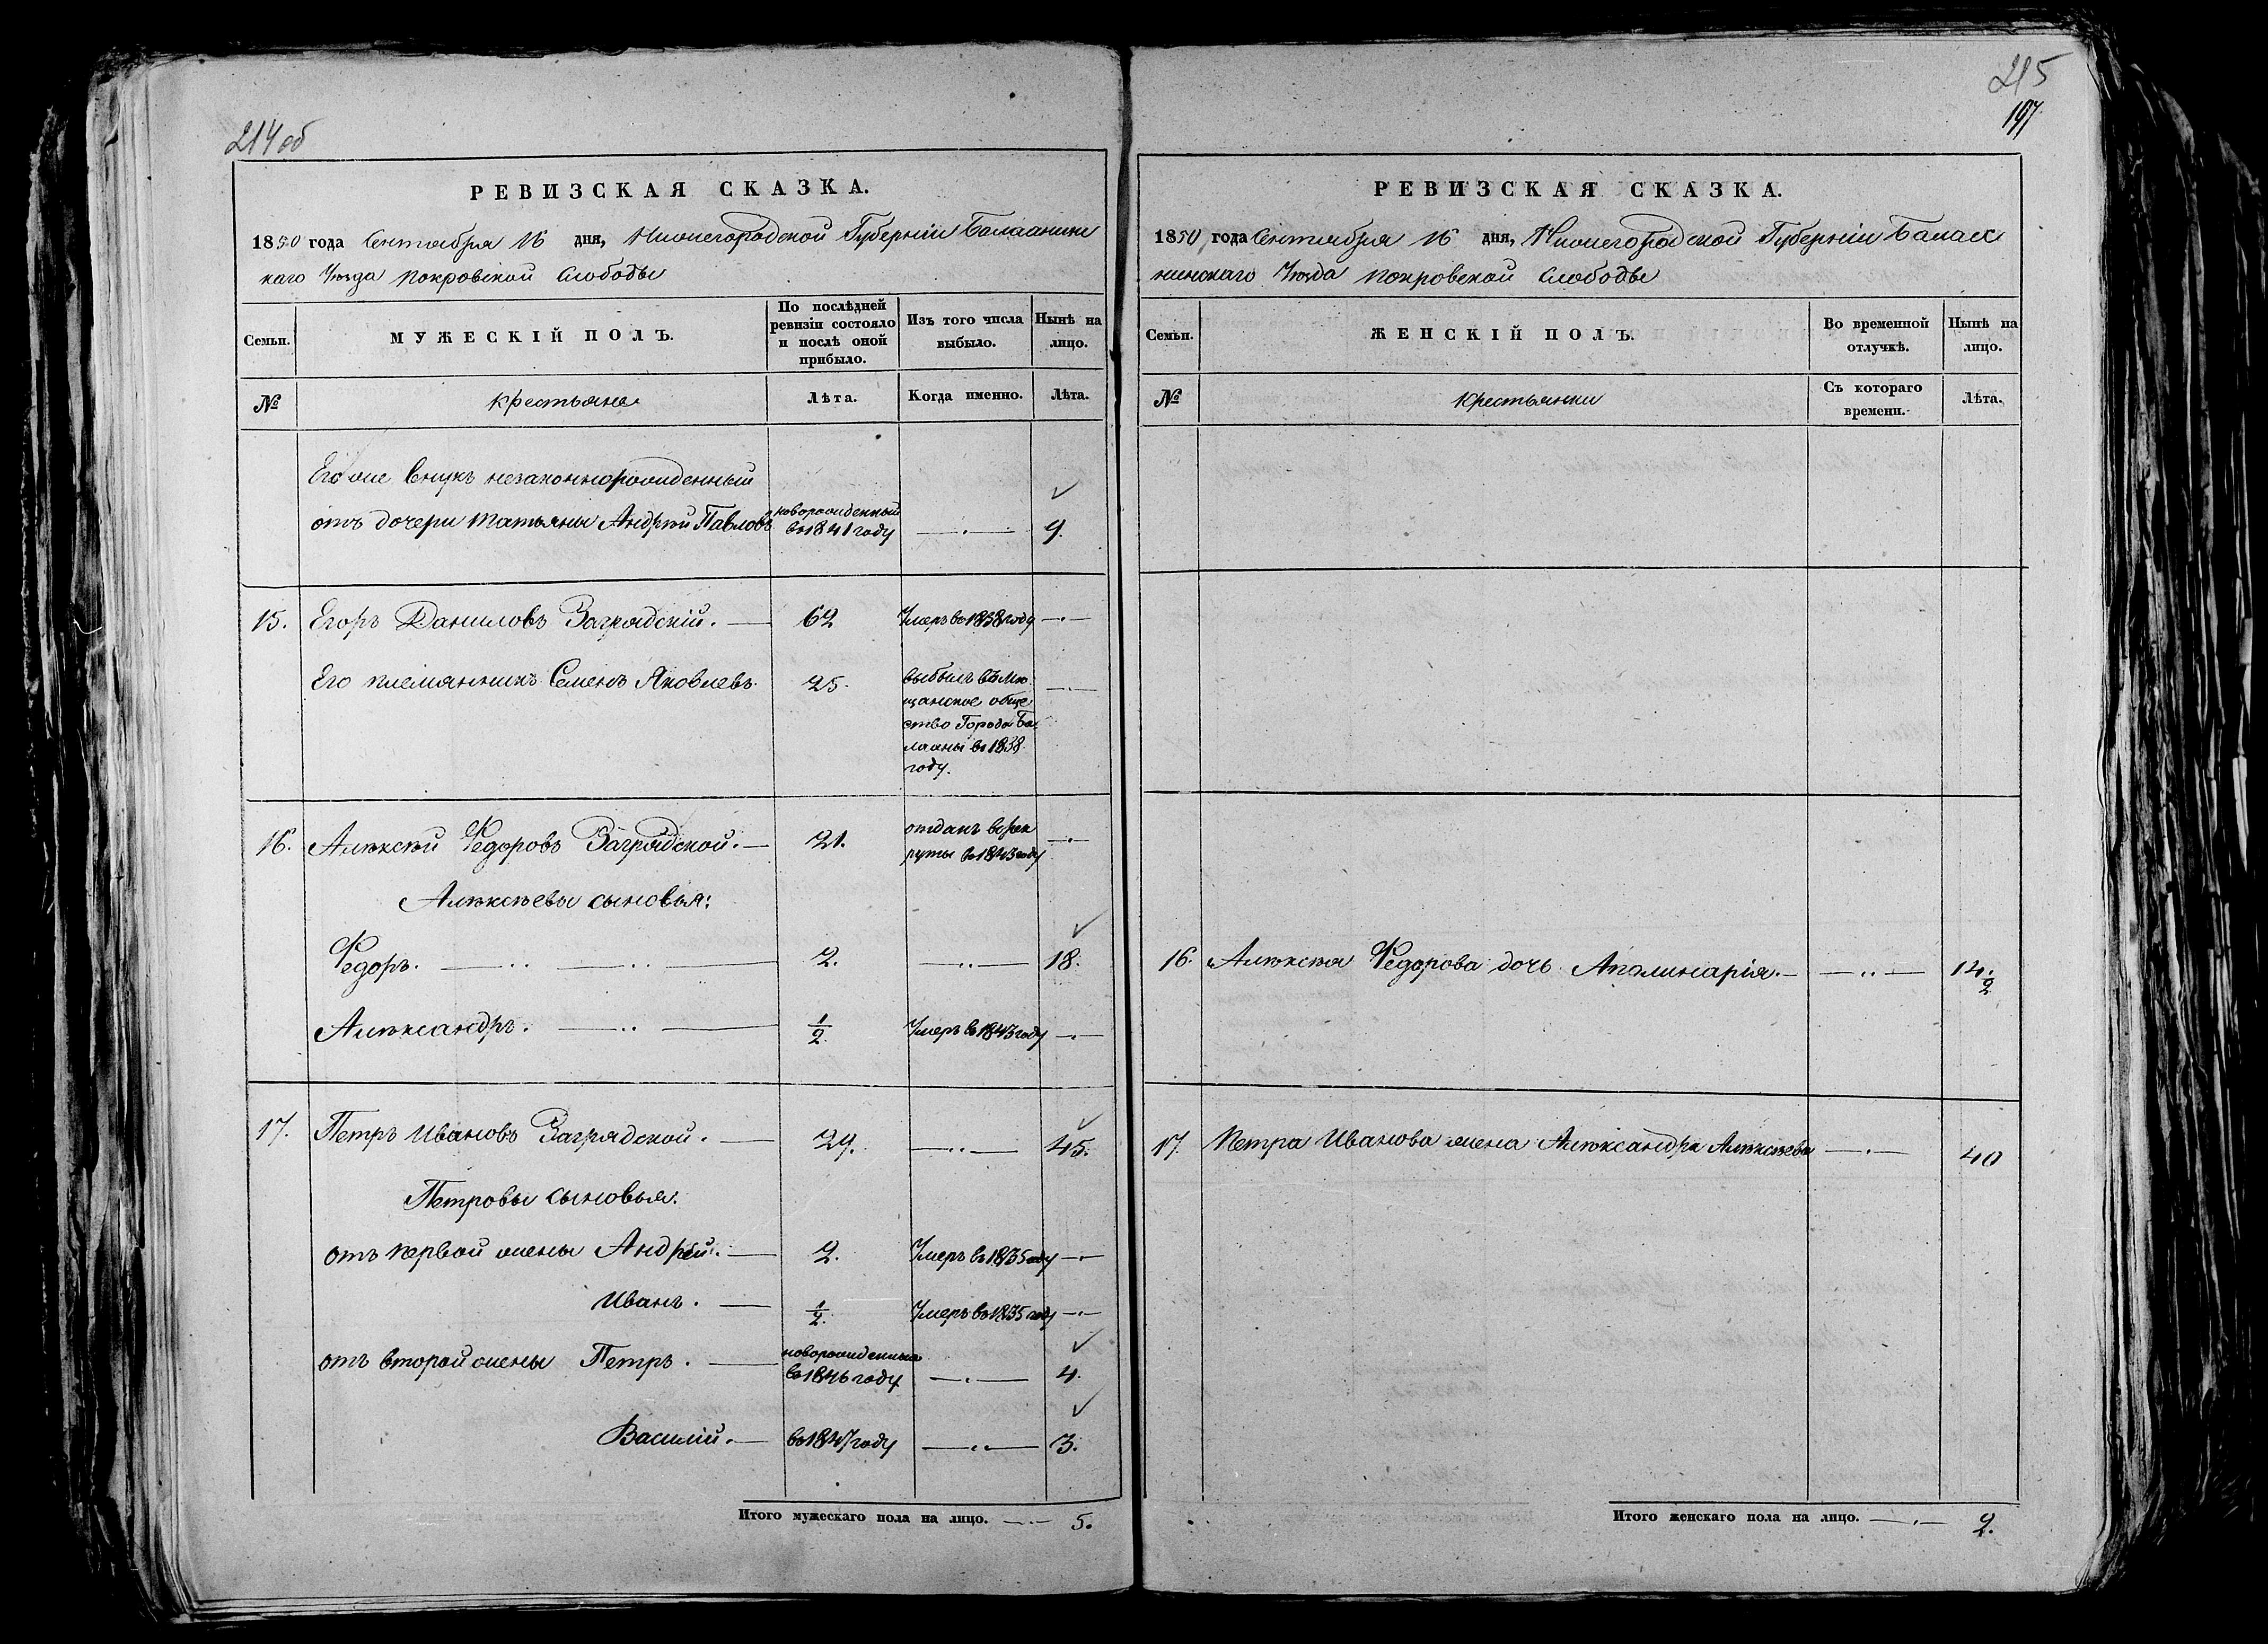 214 об
РЕВИЗСКАЯ СКАЗКА.
1850 года Сентября 16 дня, Нижегородской Губерніи Балахнинс
каго Уѣзда Покровской Слободы
Семьи.
МУЖЕСКІЙ ПОЛЪ.
По послѣдней
ревизіи состояло
и послѣ оной
прибыло.
Изъ того числа
выбыло.
Нынѣ на
лицо.
№
Крестьяне
Лѣта.
Когда именно.
Лѣта.
Его же внукъ незаконнорожденный
отъ дочери Татьяны Андрѣй Павловъ
новорожденный
въ 1841 году
9.
15. Егоръ Даниловъ Заградскій. 62 Умеръ въ 1838 году
Его племянникъ Семенъ Яковлевъ. 25.
выбылъ въ Мѣ
щанское обще
ство Города Ба
лахны въ 1838
году.
16. Алѣксѣй Ѳедоровъ Заградской. 21.
отданъ въ рек
руты въ 1843 году
Алѣксѣевы сыновья:
Ѳедоръ. 2. 18.
Алѣксандръ. 1/2 Умеръ въ 1843 году
17. Петръ Ивановъ Заградской. 29. 45.
Петровы сыновья.
отъ первой жены Андрей. 2. Умеръ въ 1835 году
Иванъ. 1/2 Умеръ въ 1835 году
отъ второй жены Петръ.
новорожденные
въ 1846 году
4.
Василій. въ 1847 году 3.
Итого мужескаго пола на лицо. 5.
215
197
РЕВИЗСКАЯ СКАЗКА.
1850 года Сентября 16 дня, Нижегородской Губерніи Балах
нинскаго Уѣзда Покровской Слободы
Семьи.
ЖЕНСКІЙ ПОЛЪ.
Во временной
отлучкѣ.
Нынѣ на
лицо.
№
Крестьянки
Съ котораго
времени.
Лѣта.
16. Алѣксѣя Ѳедорова дочь Аполинарія. 14.
17. Петра Иванова жена Алѣксандра Алѣксѣева 40
Итого женскаго пола на лицо. 2.